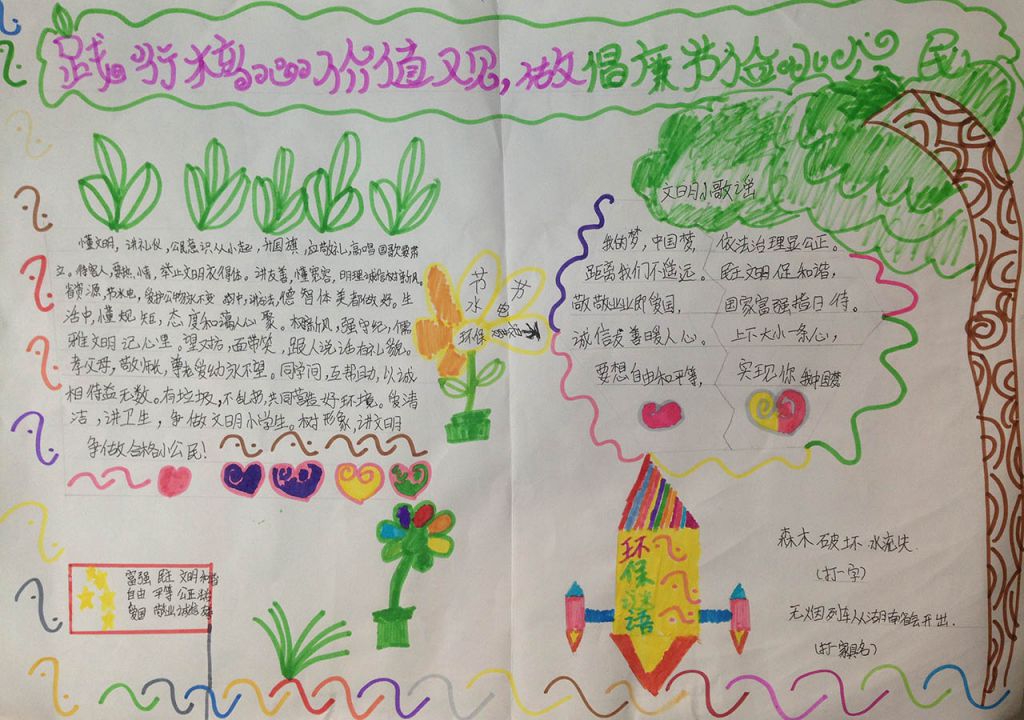 践行核心价值观,做倡廉节俭小公民
懂文明,讲礼仪,公民意识从小起,升国旗,应敬礼,高唱国歌要肃
立。待客人,要热情,举止文明衣得体。讲友善,懂宽容,明理诚信树新风,
省资源,节水电,爱护公物永不变
德智体美都做好。生
活中,懂规矩,态度和蔼人心聚。树新风,强守纪,儒
雅文明记心里。望对方,面带笑,跟人说话有礼貌。
孝父母,敬师长,尊老爱幼永不忘。同学间,互帮助,以诚
相待益无数。有垃圾,不乱扔,共同营造好环境。爱清
洁,讲卫生,争做文明小学生。树形象,讲文明
争做合格小公民!
节水
节电
环保
文明小歌谣
我的梦,中国梦,
距离我们不遥远。
敬敬业业即爱国,
诚信友善暖人心。
要想自由和平等,
依法治理显公正。
民主文明促和谐,
国家富强指日待。
上下大小一条心,
实现你我中国梦
富强 民主 文明 和谐
自由 平等 公正 法治
爱国 敬业 诚信 友善
环保谜语
森木破坏水流失.
(打一字)
无烟列车从湖南省会开出.
(打一家具名)